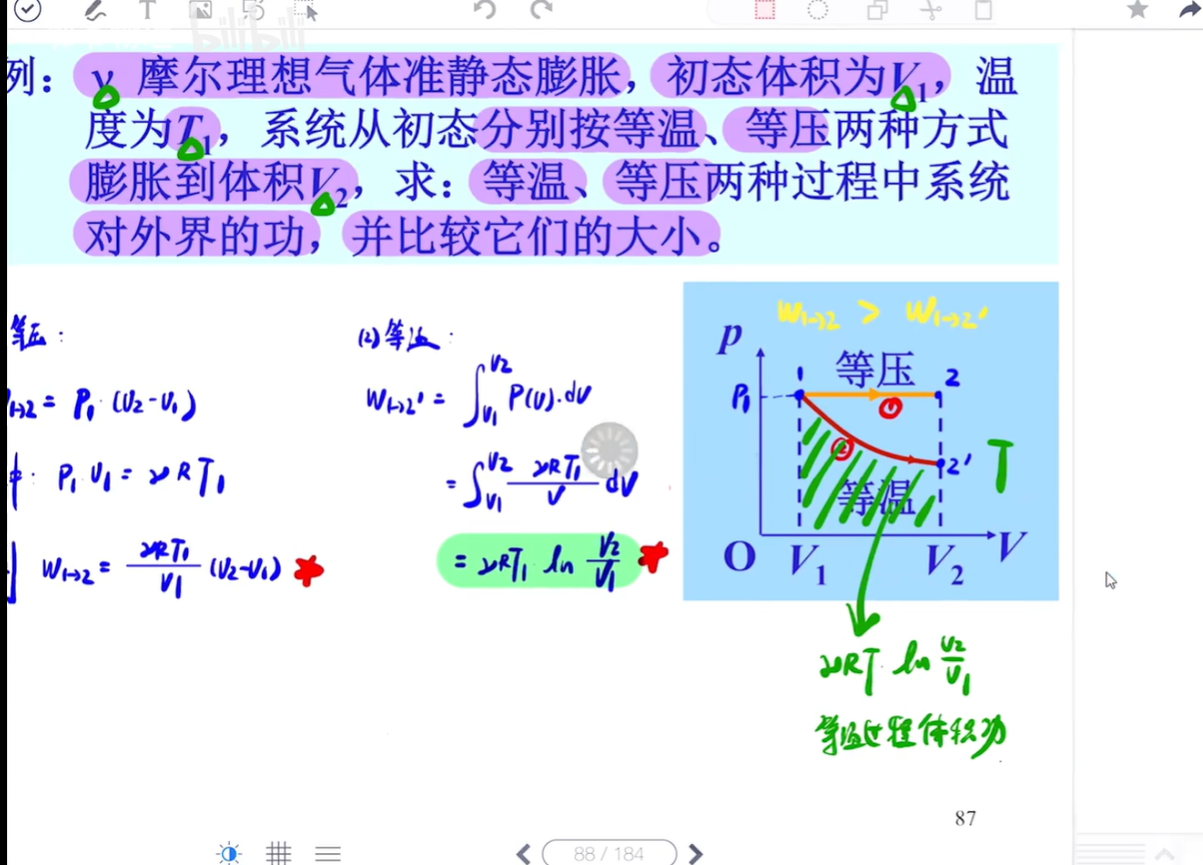 T
bilibili
列：ν 摩尔理想气体准静态膨胀，初态体积为V₁，温
度为T₁，系统从初态分别按等温、等压两种方式
膨胀到体积V₂，求：等温、等压两种过程中系统
对外界的功，并比较它们的大小。
等压：
W₁→₂ = P₁ (V₂-V₁)
中：P₁ V₁ = νRT₁
W₁→₂ = νRT₁/V₁ (V₂-V₁)
(2) 等温：
W₁→₂' = ∫V₁V₂ P(V)·dV
= ∫V₁V₂ νRT₁/V dV
= νRT₁ ln V₂/V₁
W₁→₂ > W₁→₂'
p
1 等压 2
P₁ ①
② 2' T
等温
O V₁ V₂ V
νRT ln V₂/V₁
等温过程体积功
87
88 / 184